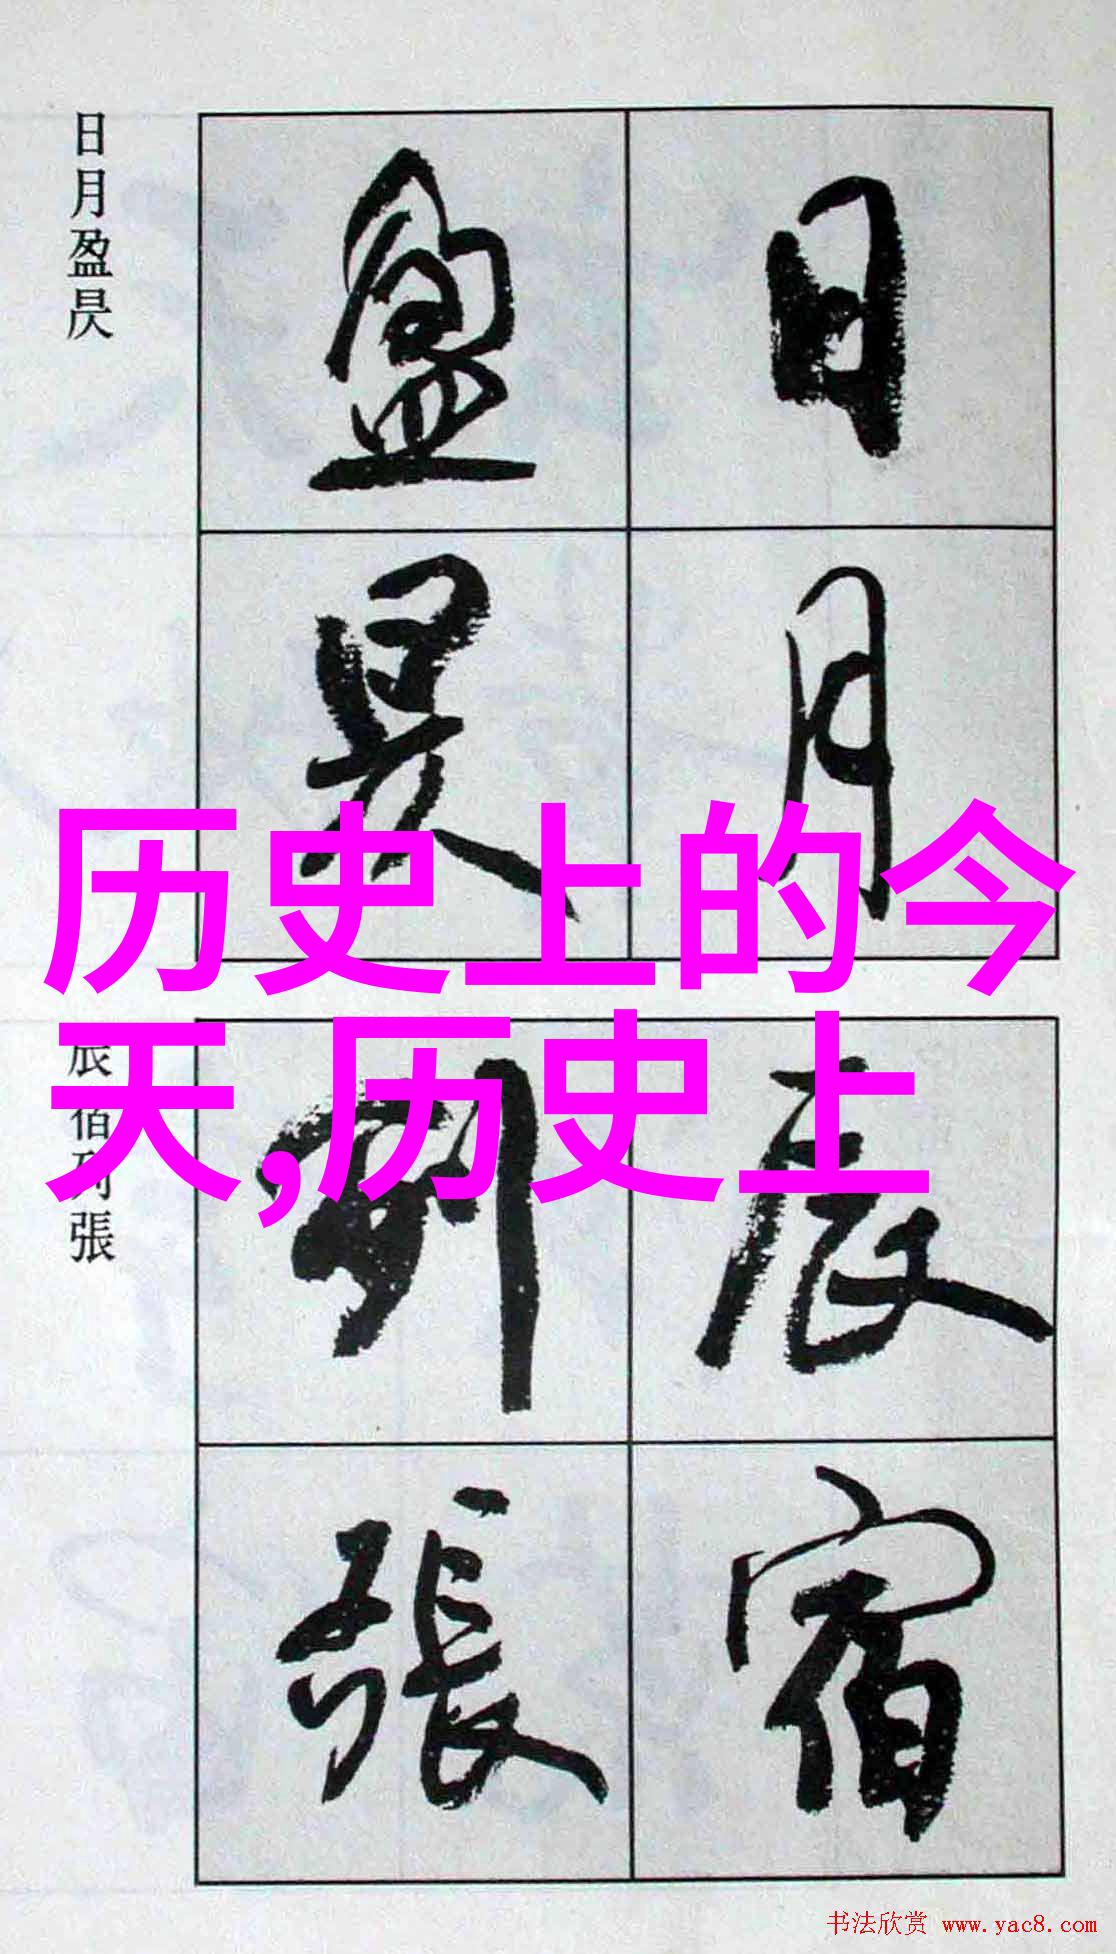 日月盈昃
日月
盈昃
历史上的今
天,历史上
辰宿列張
辰宿
列張
书法欣赏 www.yac8.com